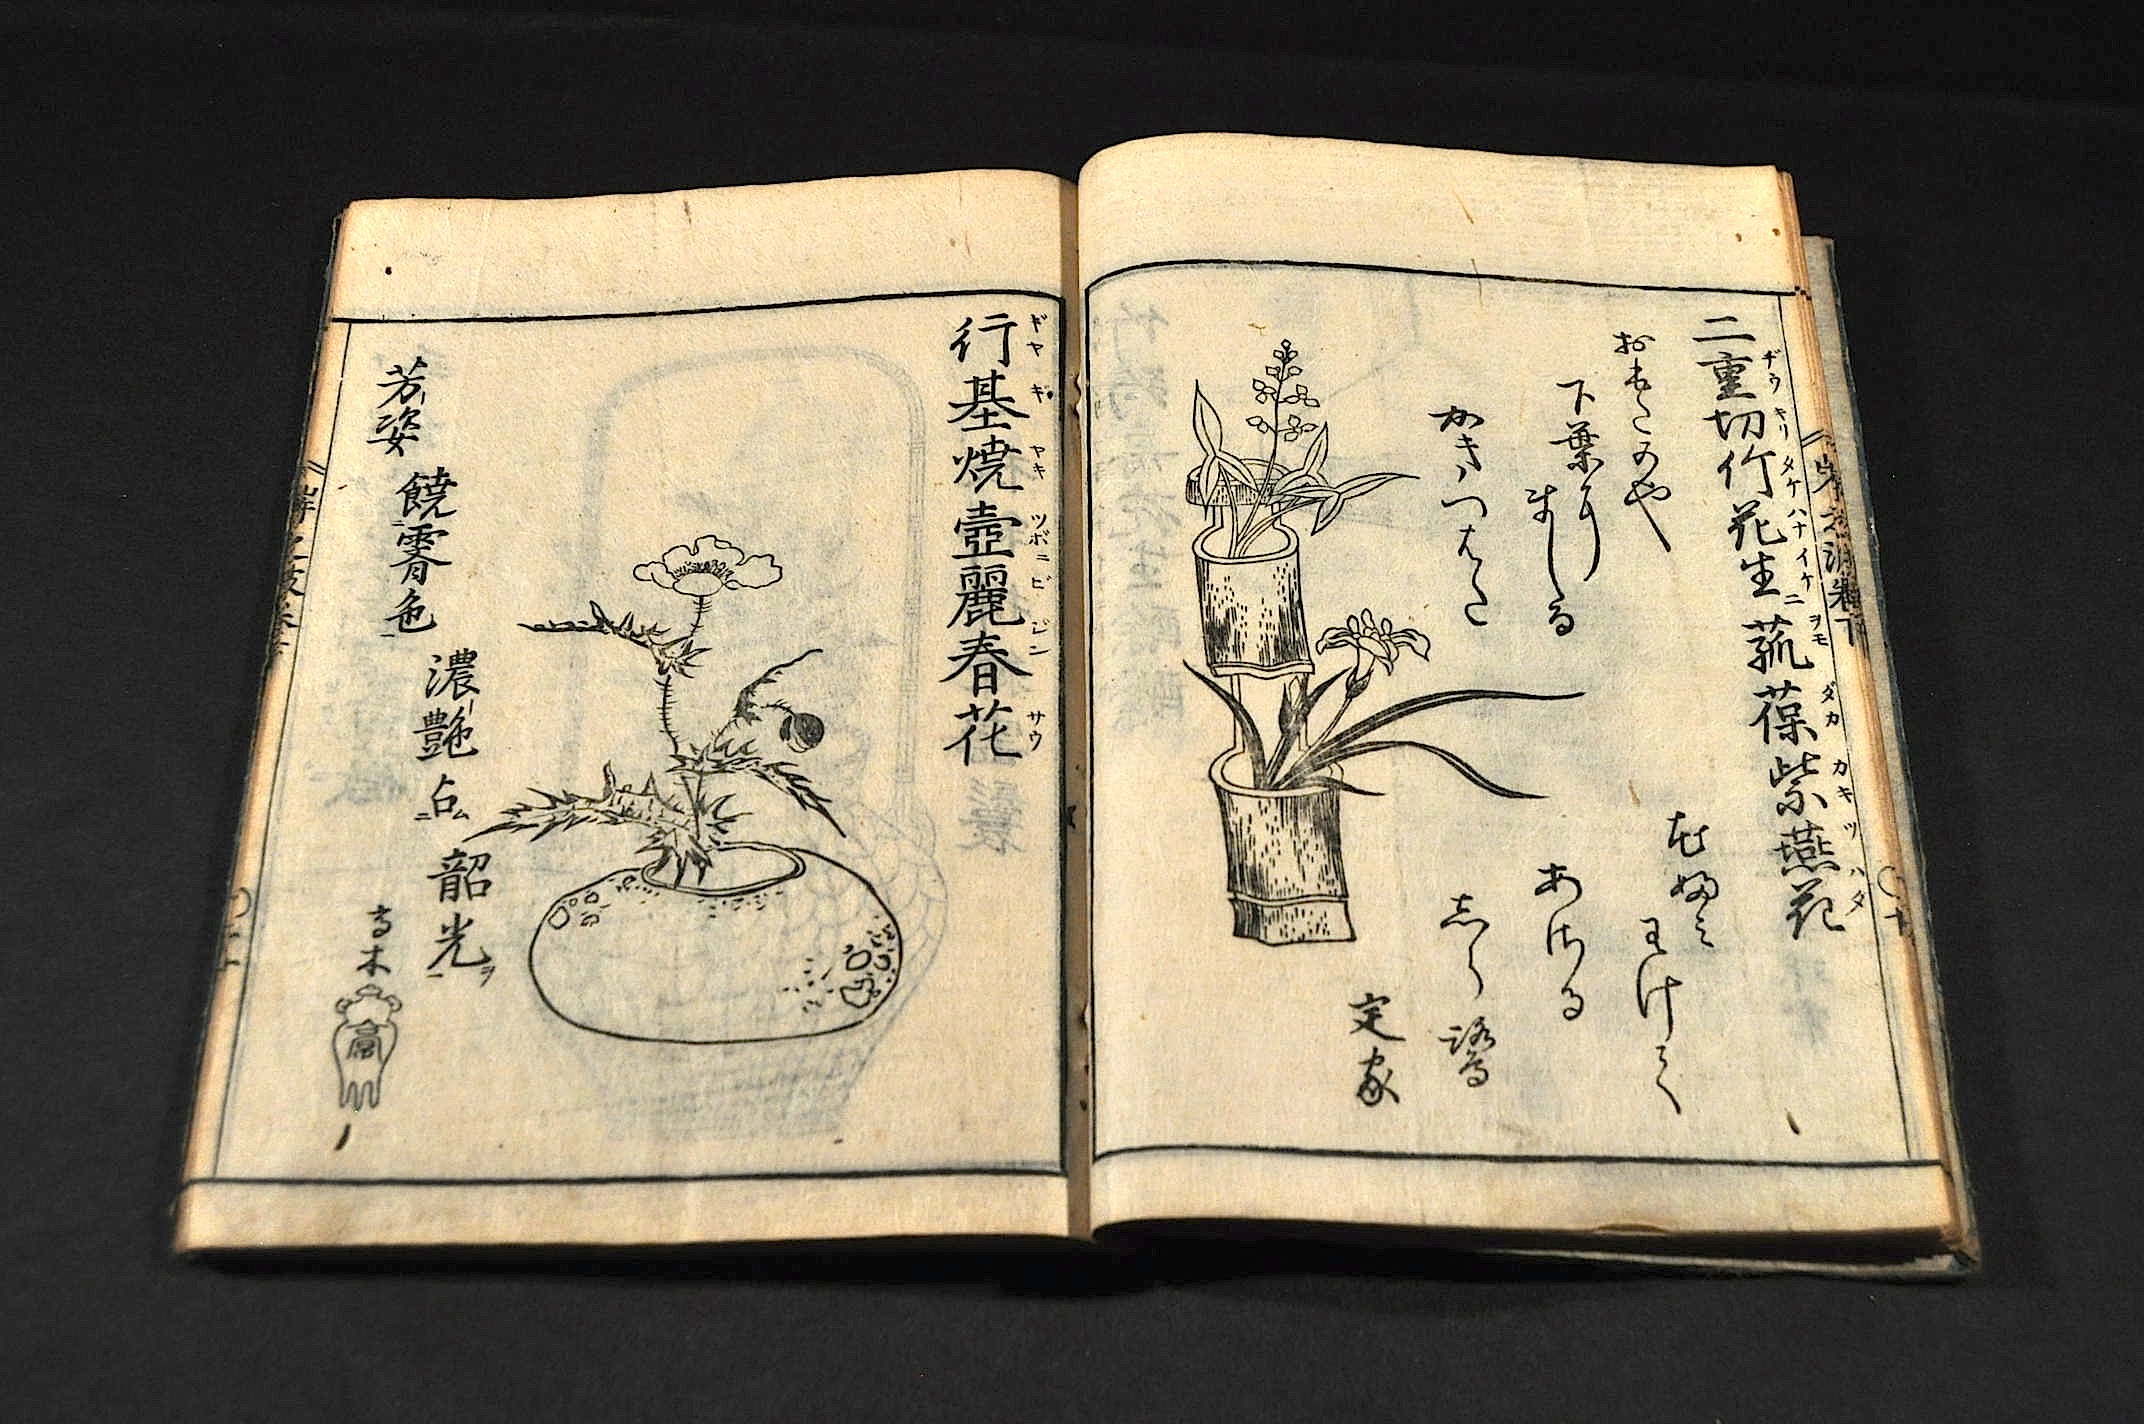 二重切竹花生菰葆紫燕花
ヂウ キリ タケ ハナイケニ ヲモ ダカ カキ ツ ハタ
おもたかや
下葉にましる
かきつはた
花ふみわけて
あさる
しら鷺
定家
行基焼壺麗春花
ギヤ ギ ヤキ ツボニ ビ ジン サウ
芳姿
饒霽色
濃艶占
韶光
高木